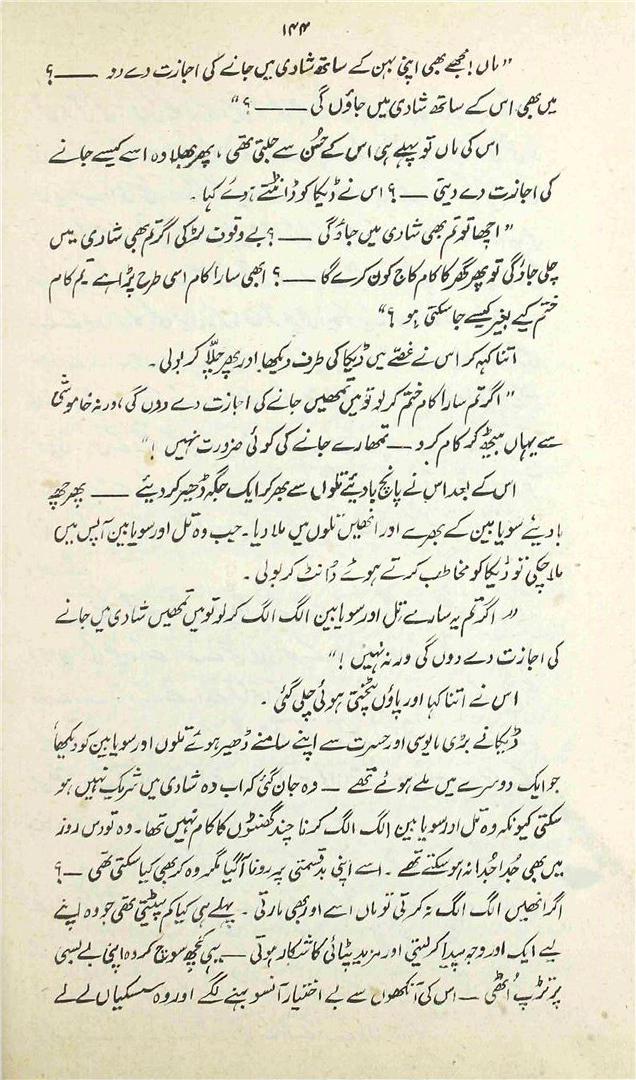 ۱۴۴
"ماں! مجھے بھی اپنی بہن کے ساتھ شادی میں جانے کی اجازت دے دو ——؟
میں بھی اس کے ساتھ شادی میں جاؤں گی ——؟"
اس کی ماں تو پہلے ہی اس کے حسُن سے جلتی تھی، پھر بھلا وہ اسے کیسے جانے
کی اجازت دے دیتی —؟ اس نے ڈیکا کو ڈانٹتے ہوئے کہا۔
"اچھا تو تم بھی شادی میں جاؤ گی ——؟ بے وقوف لڑکی اگر تم بھی شادی میں
چلی جاؤ گی تو پھر گھر کا کام کاج کون کرے گا ——؟ ابھی سارا کام اسی طرح پڑا ہے تم کام
ختم کیے بغیر کیسے جا سکتی ہو ؟"
اتنا کہہ کر اس نے غصّے میں ڈیکا کی طرف دیکھا اور پھر چلّا کر بولی۔
"اگر تم سارا کام ختم کر لو تو میں تمھیں جانے کی اجازت دے دوں گی، ورنہ خاموشی
سے یہاں بیٹھ کر کام کرو — تمھارے جانے کی کوئی ضرورت نہیں !"
اس کے بعد اس نے پانچ بادیئے تلوں سے بھر کر ایک جگہ ڈھیر کر دیئے —— پھر چھ
بادیئے سویا بین کے بھرے اور انھیں تلوں میں ملا دیا۔ جب وہ تل اور سویا بین آپس میں
ملا چکی تو ڈیکا کو مخاطب کرتے ہوئے ڈانٹ کر بولی۔
"اگر تم یہ سارے تل اور سویا بین الگ الگ کر لو تو میں تمھیں شادی میں جانے
کی اجازت دے دوں گی ورنہ نہیں !"
اس نے اتنا کہا اور پاؤں پٹختی ہوئی چلی گئی۔
ڈیکا نے بڑی مایوسی اور حسرت سے اپنے سامنے ڈھیر ہوئے تلوں اور سویا بین کو دیکھا
جو ایک دوسرے میں ملے ہوئے تھے — وہ جان گئی کہ اب وہ شادی میں شریک نہیں ہو
سکتی کیونکہ وہ تل اور سویا بین الگ الگ کرنا چند گھنٹوں کا کام نہیں تھا۔ وہ تو دس روز
میں بھی جُدا جُدا نہ ہو سکتے تھے۔ اسے اپنی بدقسمتی پر رونا آ گیا مگر وہ کر بھی کیا سکتی تھی —؟
اگر انھیں الگ الگ نہ کرتی تو ماں اسے اور بھی مارتی۔ پہلے ہی کیا کم پیٹتی تھی جو وہ اپنے
لیے ایک اور وجہ پیدا کر لیتی اور مزید پٹائی کا شکار ہوتی — یہی کچھ سوچ کر وہ اپنی بے بسی
پر تڑپ اُٹھی — اس کی آنکھوں سے بے اختیار آنسو بہنے لگے اور وہ سسکیاں لے لے